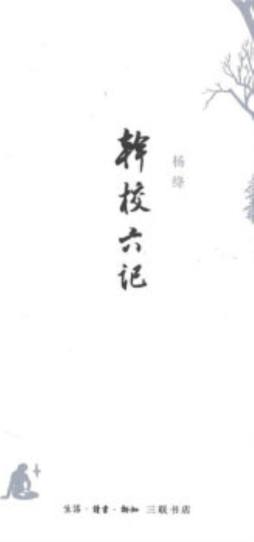 幹校六记
杨绛
生活·讀書·新知 三联书店